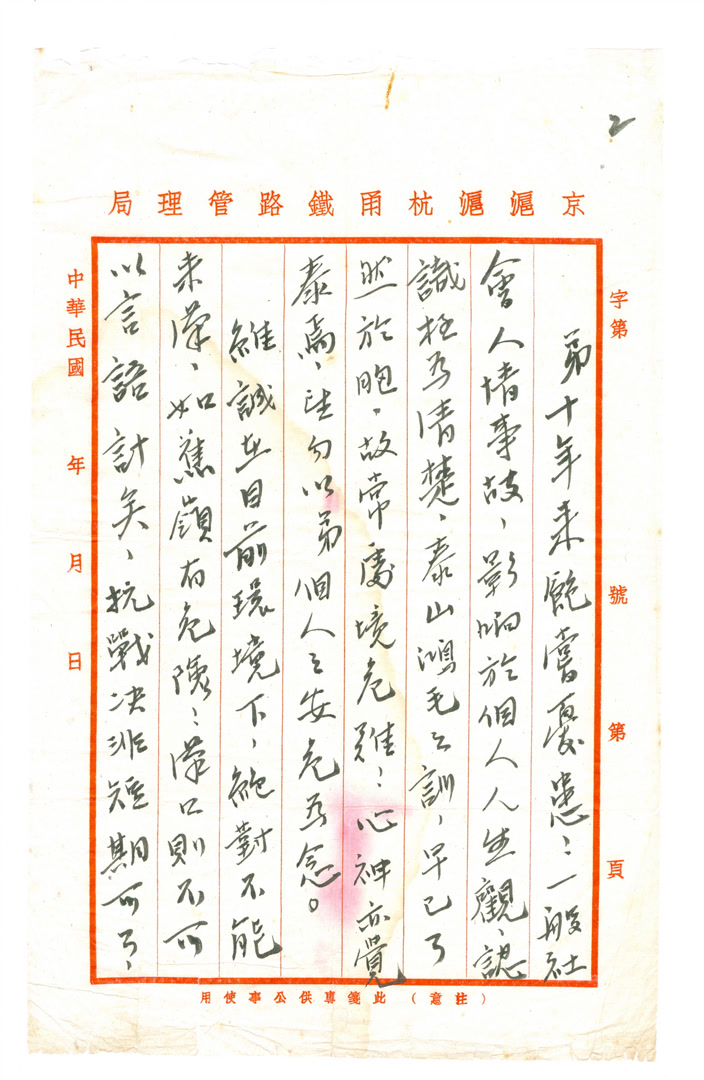 2
京滬滬杭甬鐵路管理局
字第　號　第　頁
弟十年来飽嘗憂患；一般社
會人情事故，影响於個人人生觀，認
識極為清楚，泰山鴻毛之訓，早已了
然於胞，故常處境危難；心神亦覺
泰焉，望勿以弟個人之安危為念。
維誠在目前環境下，絕對不能
来漢，如蕉嶺有危險；漢口則不可
以言語計矣，抗戰决非短期可了，
中華民國　年　月　日
（注意）此箋專供公事使用